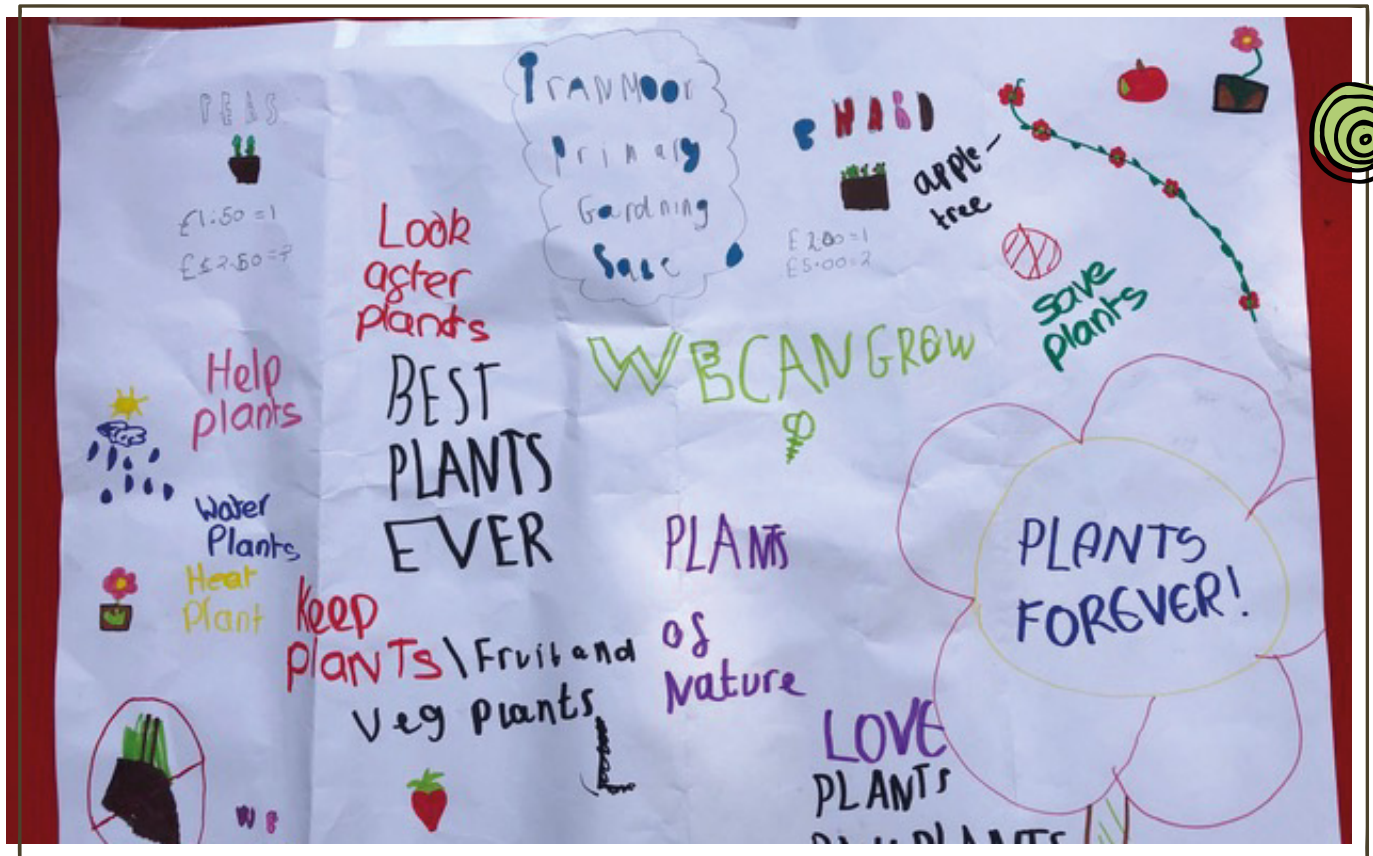 PEAS
£1.50 = 1
Look
after
plants
TRANMOOr
Primary
Gardning
Sale
CHARD
£200=1
£5.00=2
apple-
tree
save
plants
WE CAN GROW
Help
plants
BEST
PLANTS
EVER
Water
Plants
Heat
Plant
Keep
PLANTS \ Fruit and
Veg plants
PLANTS
of
Nature
PLANTS
FOREVER!
LOVE
PLANTS
PLANTS